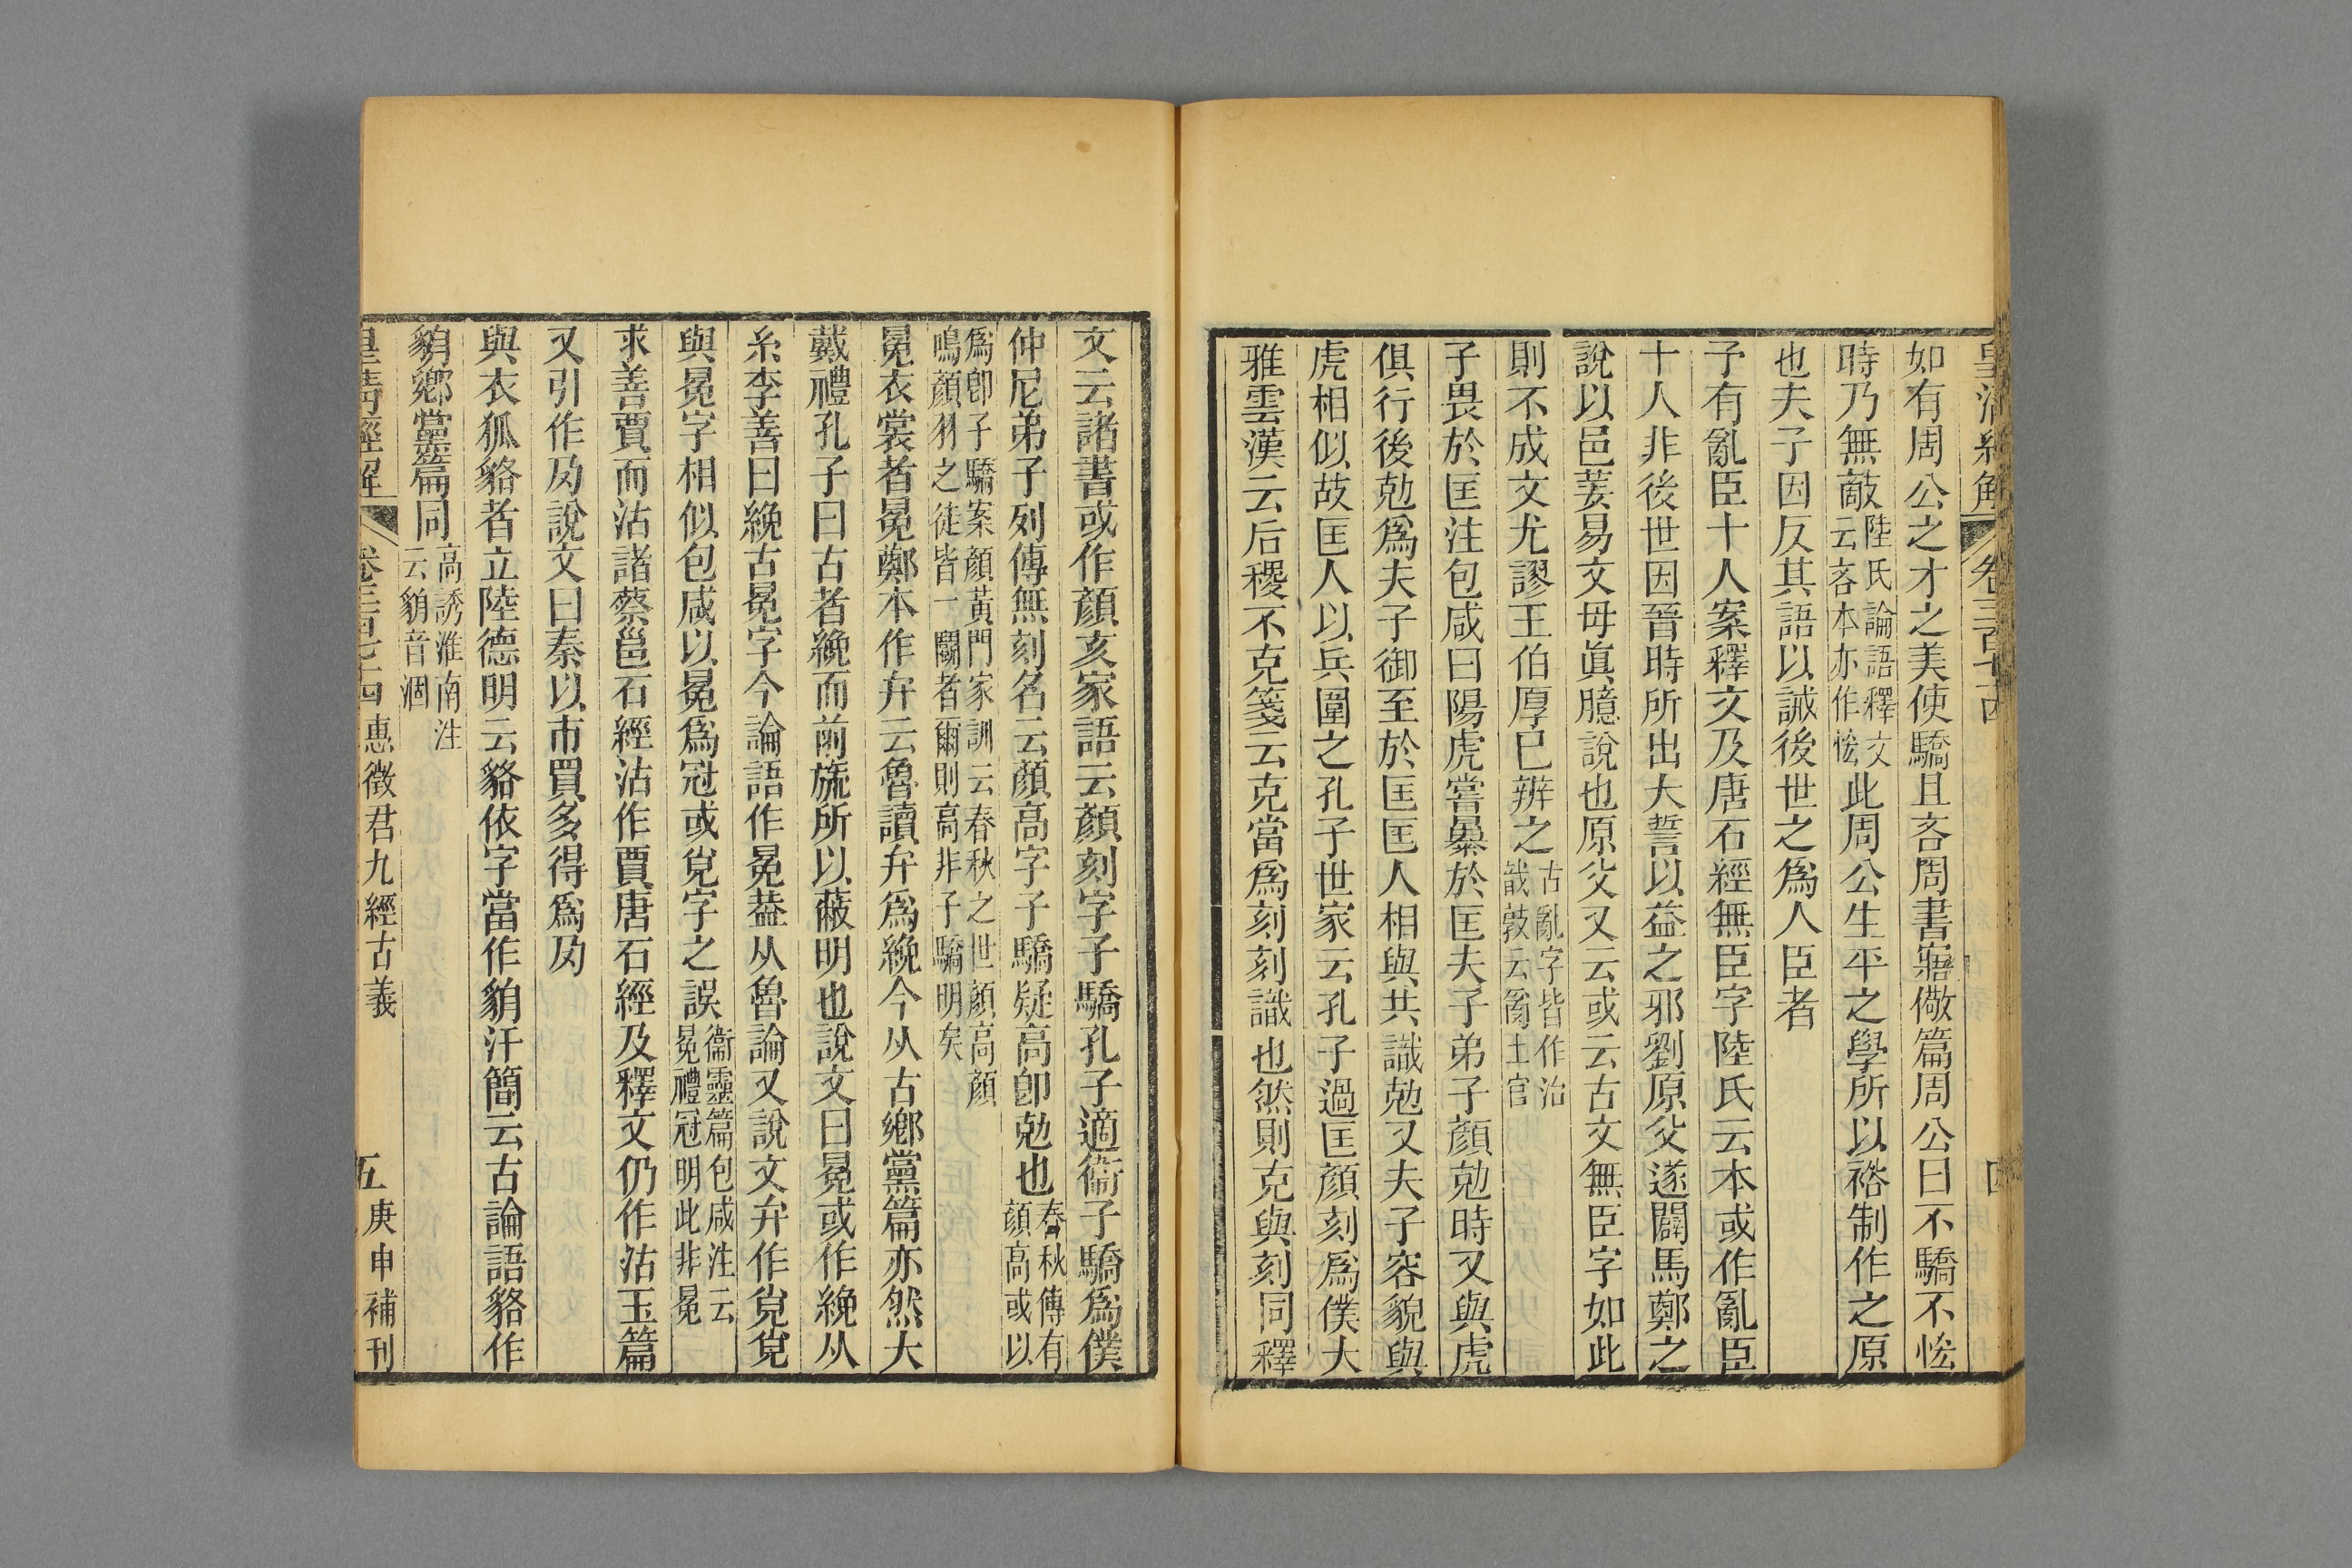 皇清經解 卷三百七十四 四
如有周公之才之美使驕且吝周書寤儆篇周公曰不驕不恡
時乃無敵陸氏論語釋文云吝本亦作恡此周公生平之學所以裕制作之原
也夫子因反其語以誡後世之爲人臣者
予有亂臣十人案釋文及唐石經無臣字陸氏云本或作亂臣
十人非後世因晉時所出大誓以益之邪劉原父遂闢馬鄭之
說以邑姜易文母眞臆說也原父又云或云古文無臣字如此
則不成文尤謬王伯厚已辨之古亂字皆作治
子畏於匡注包咸曰陽虎嘗暴於匡夫子弟子顏勊時又與虎
俱行後勊爲夫子御至於匡匡人相與共識勊又夫子容貌與
虎相似故匡人以兵圍之孔子世家云孔子過匡顏刻爲僕大
雅雲漢云后稷不克箋云克當爲刻刻識也然則克與刻同釋
文云諸書或作顏亥家語云顏刻字子驕孔子適衞子驕爲僕
仲尼弟子列傳無刻名云顏高字子驕疑高卽勊也春秋傳有顏高或以
爲卽子驕案顏黃門家訓云春秋之世顏高顏鳴顏羽之徒皆一鬭者爾則高非子驕明矣
冕衣裳者冕鄭本作弁云魯讀弁爲絻今从古鄉黨篇亦然大
戴禮孔子曰古者絻而前旒所以蔽明也說文曰冕或作絻从
糸李善曰絻古冕字今論語作冕葢从魯論又說文弁作㝸㝸
與冕字相似包咸以冕爲冠或㝸字之誤衞靈篇包咸注云冕禮冠明此非冕
求善賈而沽諸蔡邕石經沽作賈唐石經及釋文仍作沽玉篇
又引作夃說文曰秦以市買多得爲夃
與衣狐貉者立陸德明云貉依字當作貈汗簡云古論語貉作
貈鄉黨篇同高誘淮南注云貈音涸
皇清經解 卷三百七十四 惠徵君九經古義 五 庚申補刊